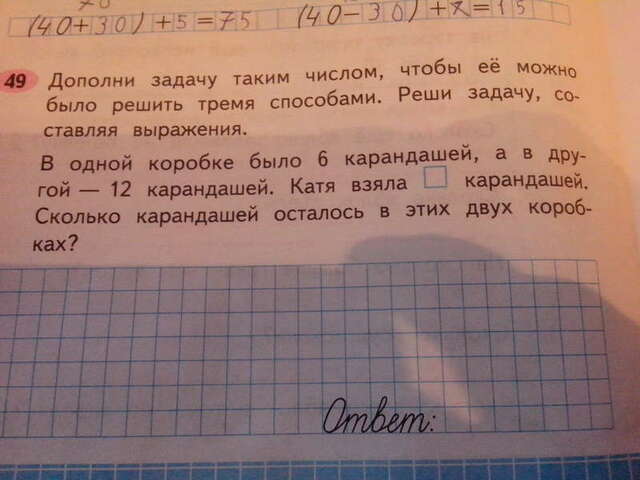 (40+30)+5=75 (40-30)+ =15
49 Дополни задачу таким числом, чтобы её можно
было решить тремя способами. Реши задачу, со-
ставляя выражения.
В одной коробке было 6 карандашей, а в дру-
гой — 12 карандашей. Катя взяла □ карандашей.
Сколько карандашей осталось в этих двух короб-
ках?
Ответ: